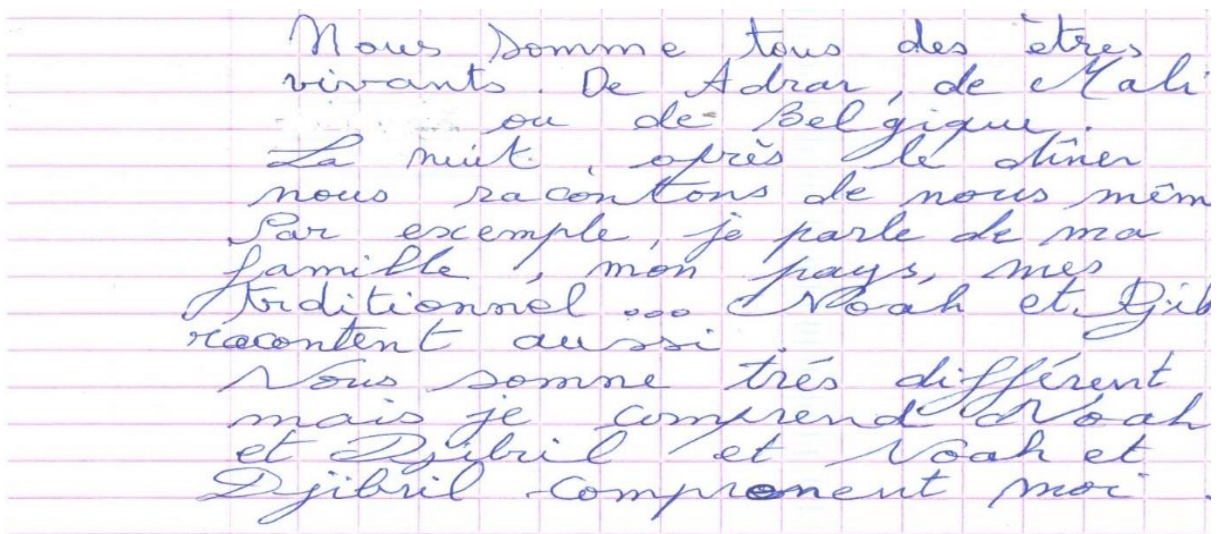 Nous somme tous des êtres
vivants. De Adrar, de Mali
ou de Belgique.
La nuit, après le dîner
nous racontons de nous mêm
Par exemple, je parle de ma
famille, mon pays, mes
trditionnel ... Noah et Djib
racontent aussi
Nous somme trés différent
mais je comprend Noah
et Djibril et Noah et
Djibril comprenent moi.